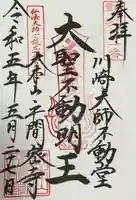 奉拝
川崎大師不動堂
大聖不動明王
大本山平間寺
令和五年五月二十七日